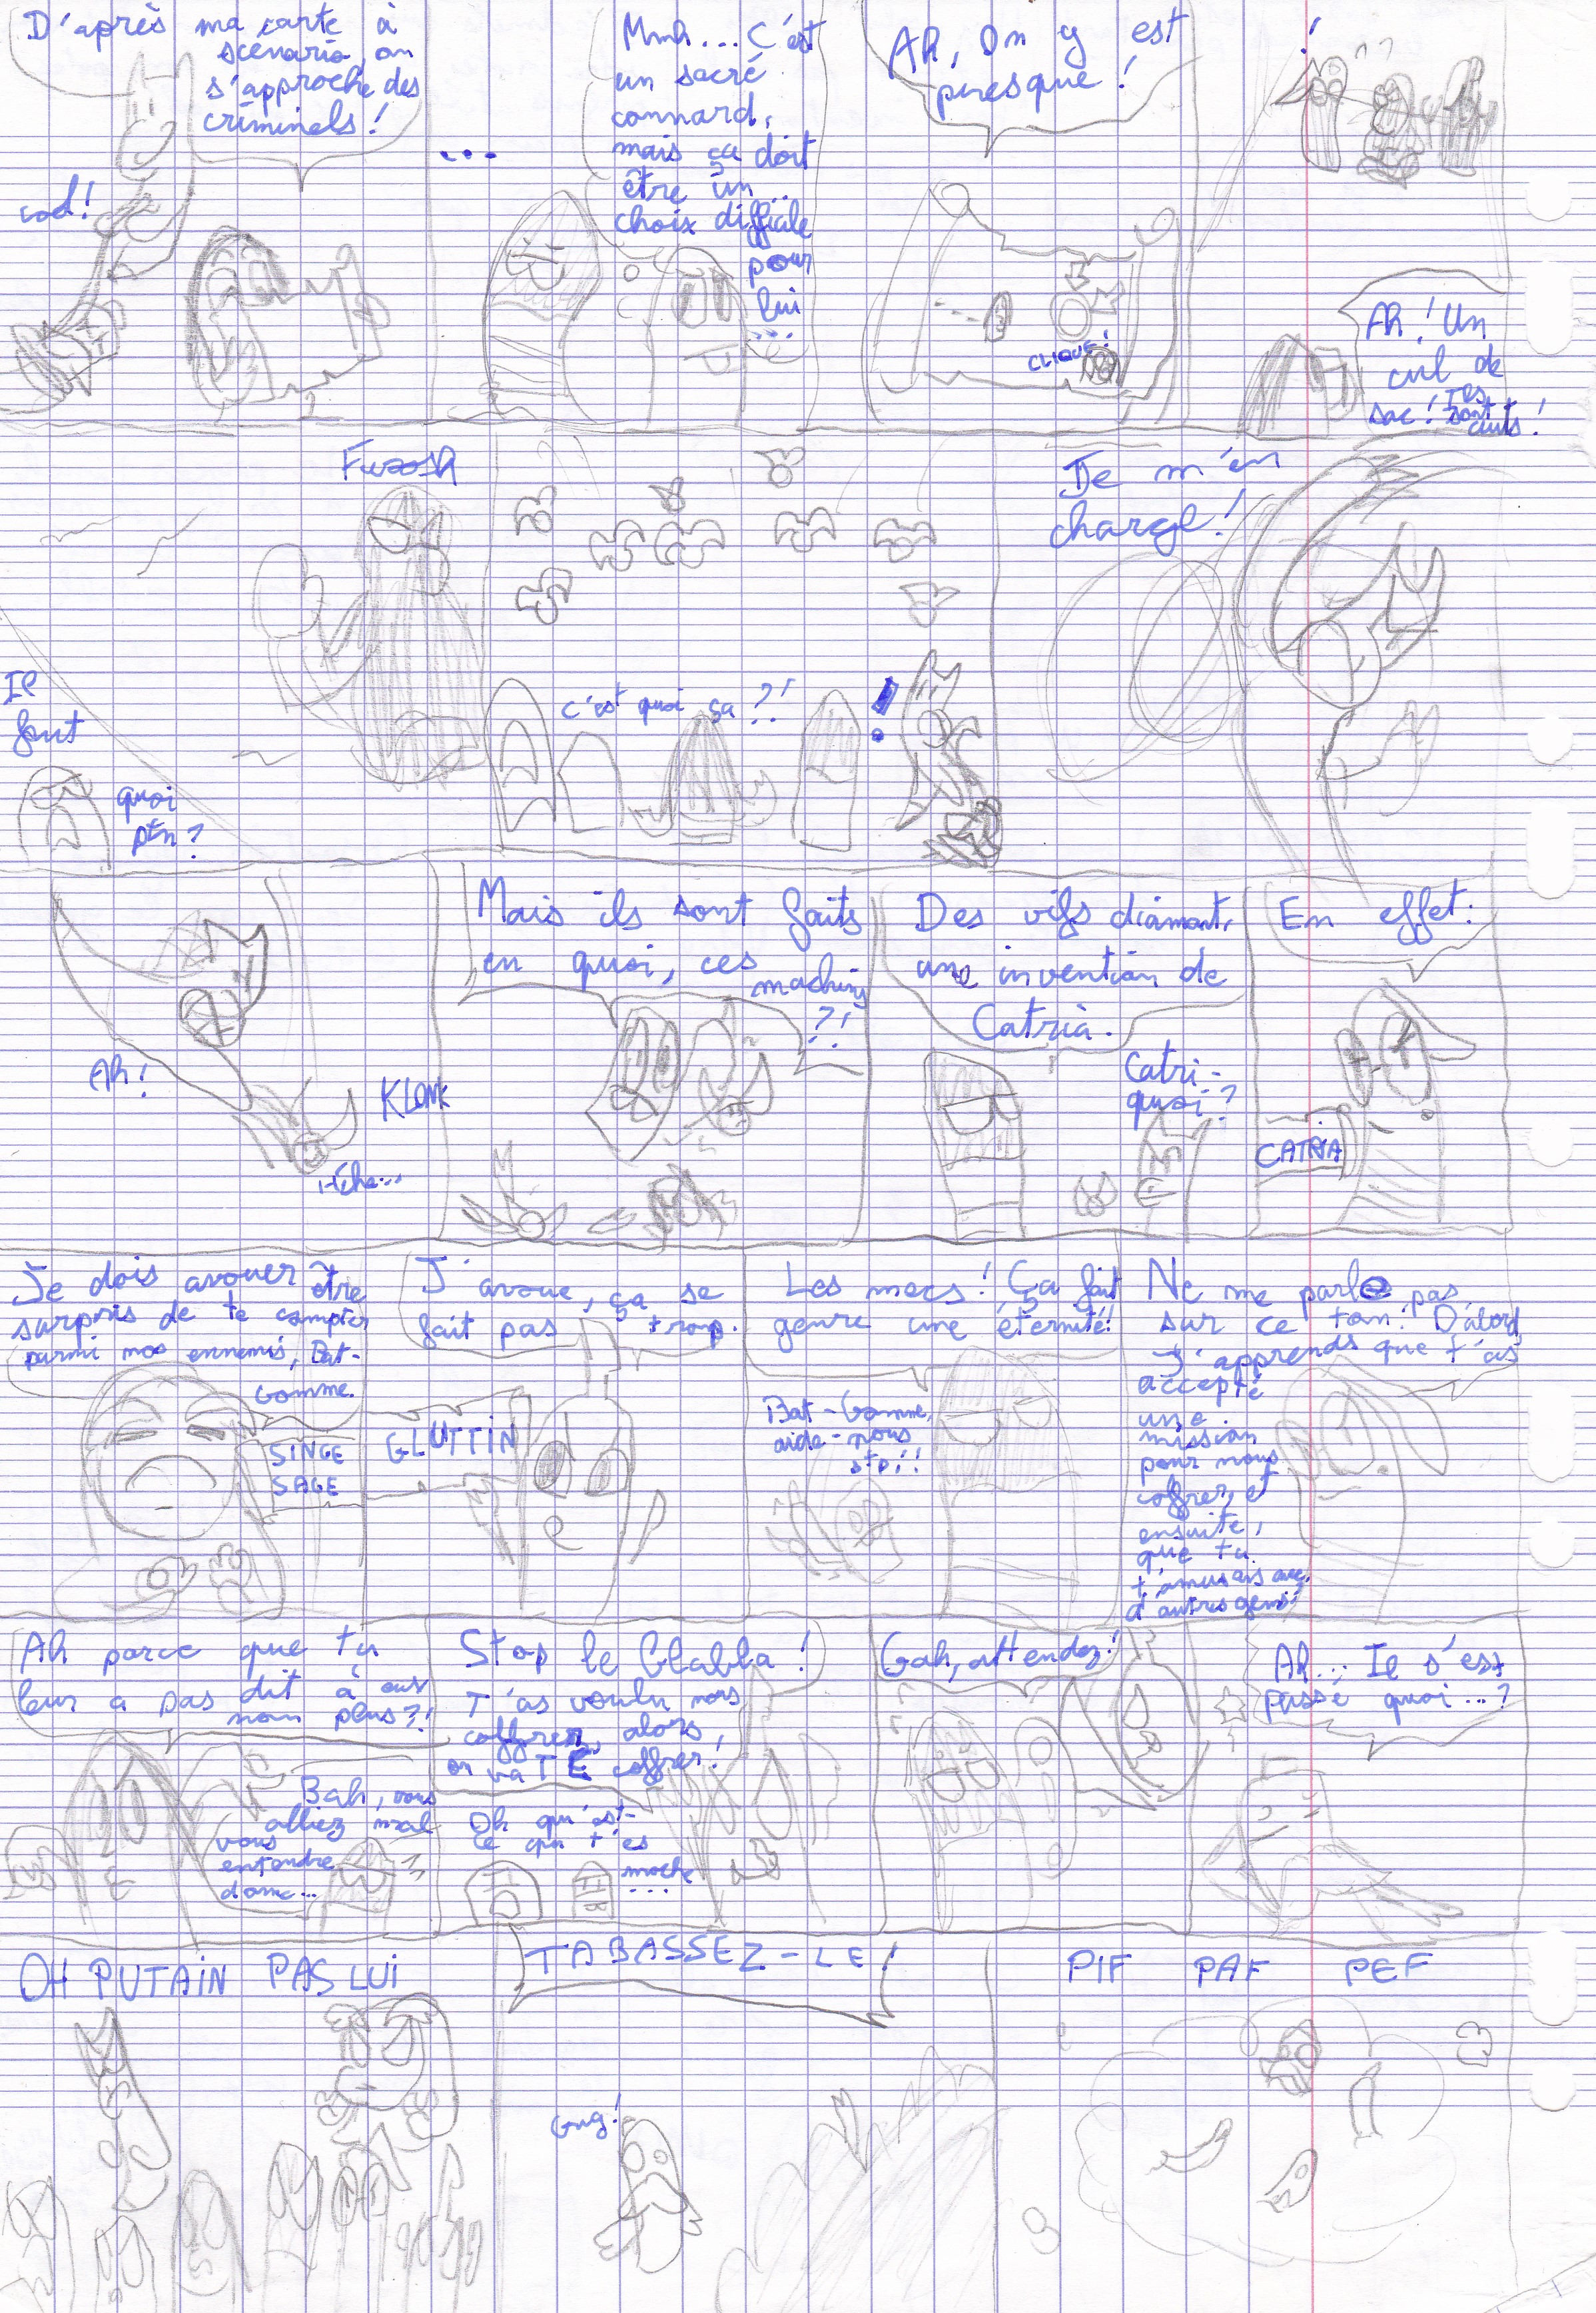 D'après ma carte à
scénario, on
s'approche des
criminels !
cool !
...
Mmh... C'est
un sacré
connard,
mais ça doit
être un...
choix difficile
pour
lui
...
Ah, On y est
presque !
CLIQUE !
!
Ah ! Un
cul de
sac ! Ils
sont
cuits !
Fwoosh
Il
font
quoi
ptn ?
c'est quoi ça ?!
!
Je m'en
charge !
Ah !
KLONK
Mais ils sont faits
en quoi, ces
machins
?!
Des vifs diamant,
une invention de
Catria.
Catri-
quoi ?
En effet :
CATRIA
Je dois avouer être
surpris de te compter
parmi nos ennemis, Bat-
Gomme.
SINGE
SAGE
J'avoue, ça se
fait pas trop.
GLUTTIN
Les mecs ! Ça fait
genre une éternité !
Bat-Gomme,
aide-nous
stp !!
Ne me parle pas
sur ce ton ! D'abord
j'apprends que t'as
accepté
une
mission
pour nous
coffrer, et
ensuite,
que tu
t'amusais avec
d'autres gens !
Ah parce que tu
leur a pas dit à eux
non plus ?!
Bah, vous
alliez mal
vous
entendre
donc...
Stop le blabla !
T'as voulu nous
coffrer, alors,
on va TE coffrer !
Oh qu'est-
ce que t'es
moche
...
Gah, attendez !
Ah... Il s'est
passé quoi...?
OH PUTAIN PAS LUI
TABASSEZ-LE !
Gng !
PIF PAF PEF